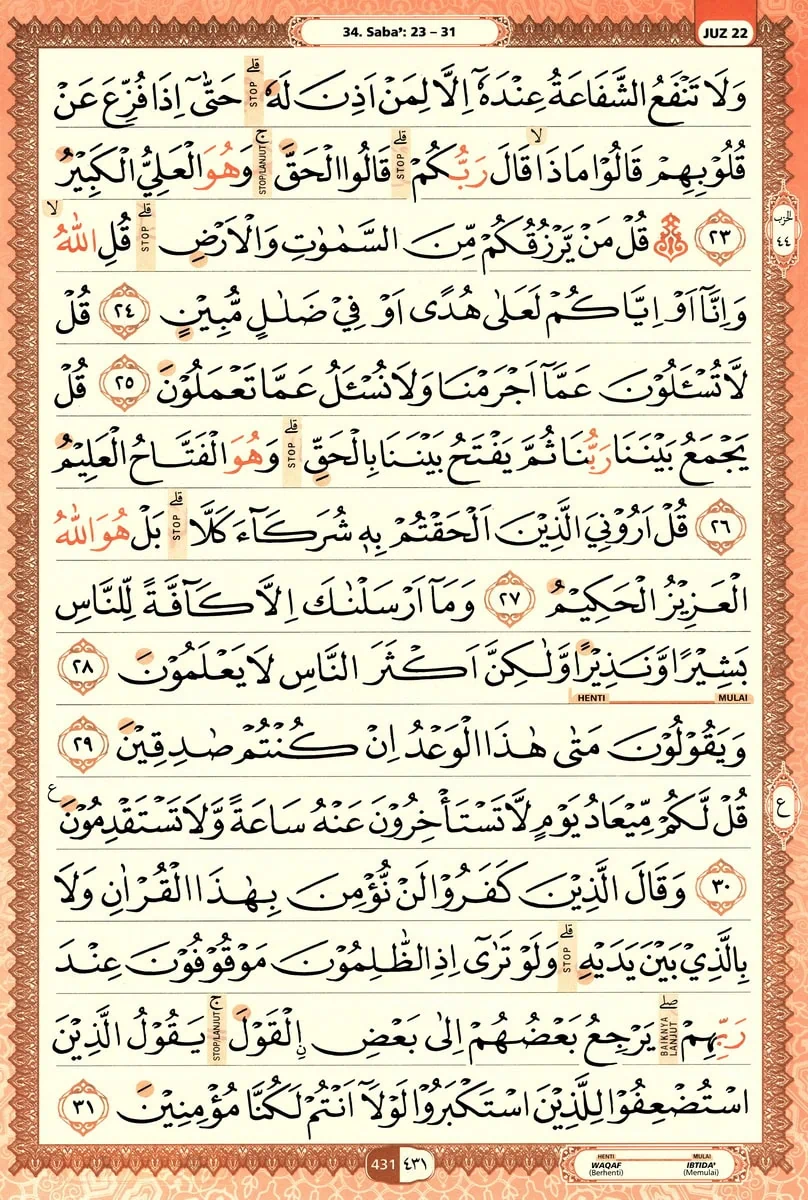 34. Saba': 23 – 31
JUZ 22
وَلَا تَنْفَعُ الشَّفَاعَةُ عِنْدَهٗٓ اِلَّا لِمَنْ اَذِنَ لَهٗ ۗ STOP حَتّٰىٓ اِذَا فُزِّعَ عَنْ
قُلُوْبِهِمْ قَالُوْا مَاذَا قَالَ ۙ رَبُّكُمْ ۗ STOP قَالُوا الْحَقَّ ۚ STOP/LANJUT وَهُوَ الْعَلِيُّ الْكَبِيْرُ
٢٣ ۞ قُلْ مَنْ يَّرْزُقُكُمْ مِّنَ السَّمٰوٰتِ وَالْاَرْضِ ۗ STOP قُلِ اللّٰهُ ۙ
وَاِنَّآ اَوْ اِيَّاكُمْ لَعَلٰى هُدًى اَوْ فِيْ ضَلٰلٍ مُّبِيْنٍ ٢٤ قُلْ
لَّا تُسْـَٔلُوْنَ عَمَّآ اَجْرَمْنَا وَلَا نُسْـَٔلُ عَمَّا تَعْمَلُوْنَ ٢٥ قُلْ
يَجْمَعُ بَيْنَنَا رَبُّنَا ثُمَّ يَفْتَحُ بَيْنَنَا بِالْحَقِّ ۗ STOP وَهُوَ الْفَتَّاحُ الْعَلِيْمُ
٢٦ قُلْ اَرُوْنِيَ الَّذِيْنَ اَلْحَقْتُمْ بِهٖ شُرَكَاۤءَ كَلَّا ۗ STOP بَلْ هُوَ اللّٰهُ
الْعَزِيْزُ الْحَكِيْمُ ٢٧ وَمَآ اَرْسَلْنٰكَ اِلَّا كَاۤفَّةً لِّلنَّاسِ
بَشِيْرًا وَّنَذِيْرًا وَّلٰكِنَّ اَكْثَرَ النَّاسِ لَا يَعْلَمُوْنَ ٢٨
MULAI HENTI
وَيَقُوْلُوْنَ مَتٰى هٰذَا الْوَعْدُ اِنْ كُنْتُمْ صٰدِقِيْنَ ٢٩
قُلْ لَّكُمْ مِّيْعَادُ يَوْمٍ لَّا تَسْتَأْخِرُوْنَ عَنْهُ سَاعَةً وَّلَا تَسْتَقْدِمُوْنَ ع
٣٠ وَقَالَ الَّذِيْنَ كَفَرُوْا لَنْ نُّؤْمِنَ بِهٰذَا الْقُرْاٰنِ وَلَا
بِالَّذِيْ بَيْنَ يَدَيْهِ ۗ STOP وَلَوْ تَرٰىٓ اِذِ الظّٰلِمُوْنَ مَوْقُوْفُوْنَ عِنْدَ
رَبِّهِمْ ۖ BAIKNYA LANJUT يَرْجِعُ بَعْضُهُمْ اِلٰى بَعْضِ ِۨالْقَوْلَ ۚ STOP/LANJUT يَقُوْلُ الَّذِيْنَ
اسْتُضْعِفُوْا لِلَّذِيْنَ اسْتَكْبَرُوْا لَوْلَآ اَنْتُمْ لَكُنَّا مُؤْمِنِيْنَ ٣١
الحزب
٤٤
ع
431 ٤٣١
HENTI MULAI
WAQAF IBTIDA'
(Berhenti) (Memulai)